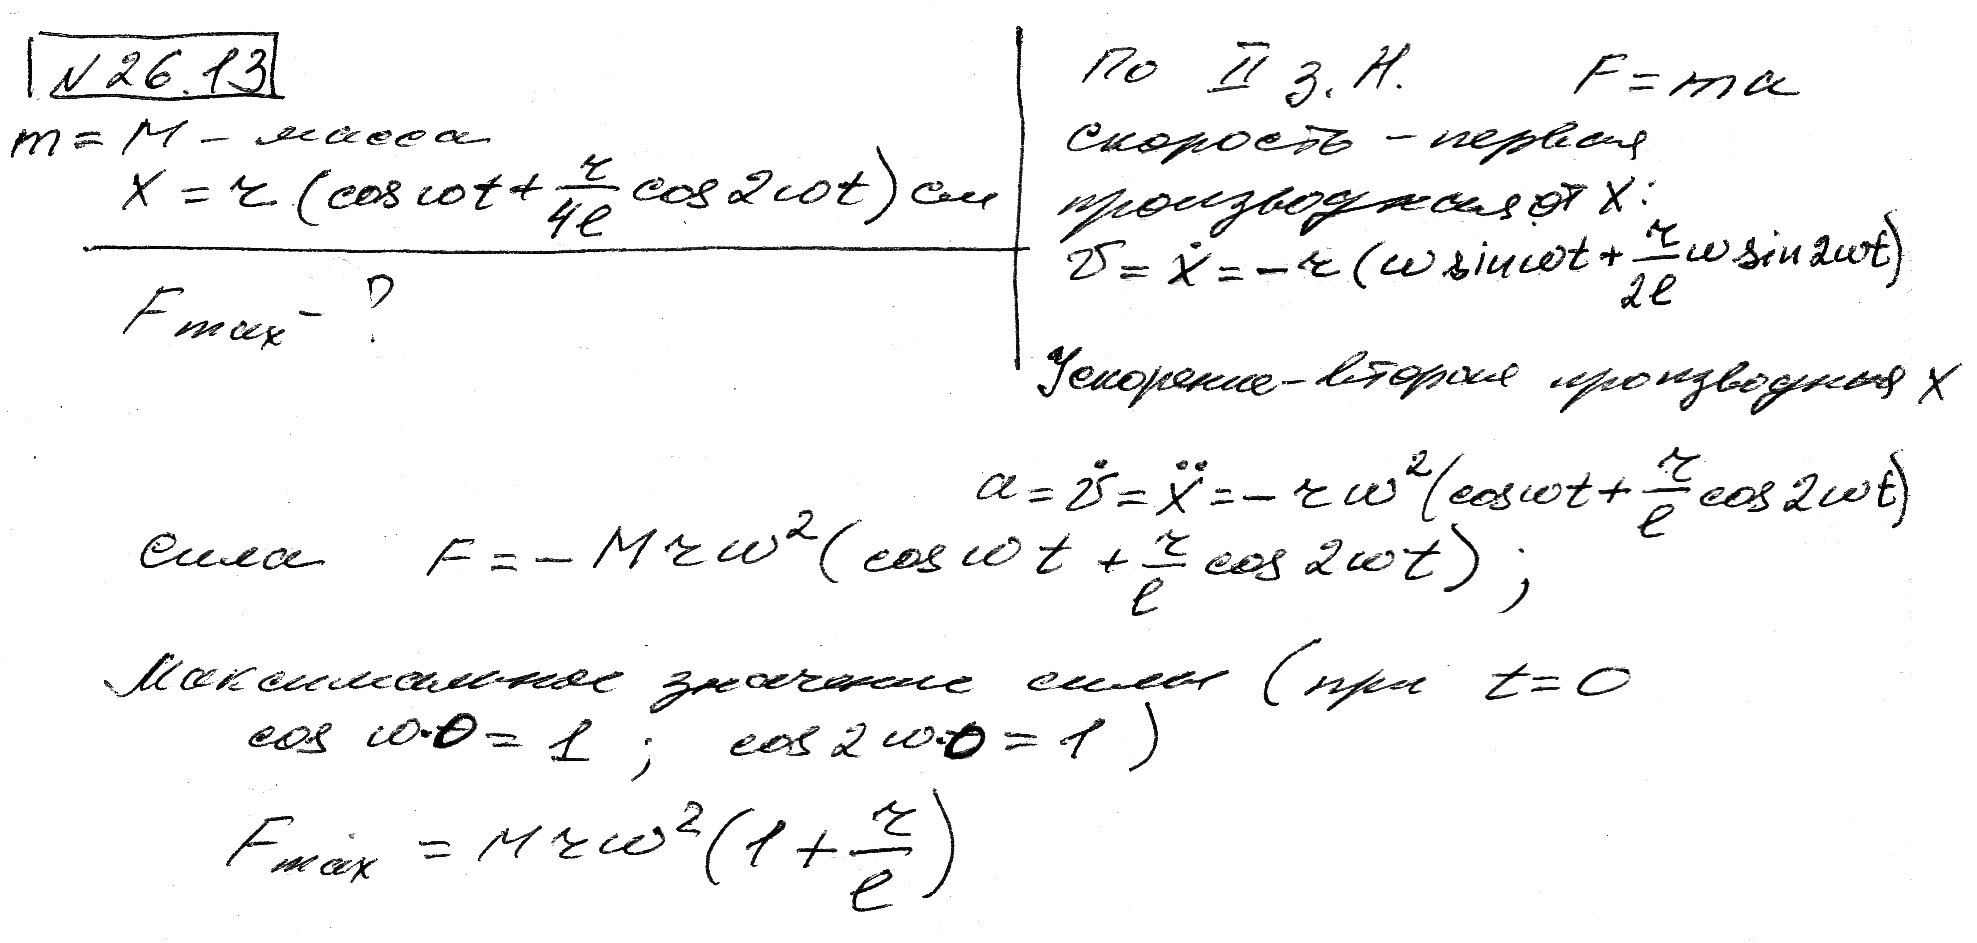 N 26.13
m = M – масса
x = r (cos ωt + r/4l cos 2ωt) см
Fmax – ?
По II з. Н. F = ma
скорость – первая
производная от x:
v = ẋ = – r (ω sin ωt + r/2l ω sin 2ωt)
Ускорение – вторая производная x
a = v̇ = ẍ = – rω² (cos ωt + r/l cos 2ωt)
сила F = – M r ω² (cos ωt + r/l cos 2ωt) ;
Максимальное значение силы (при t = 0
cos ω·0 = 1 ; cos 2ω·0 = 1 )
Fmax = M r ω² (1 + r/l)